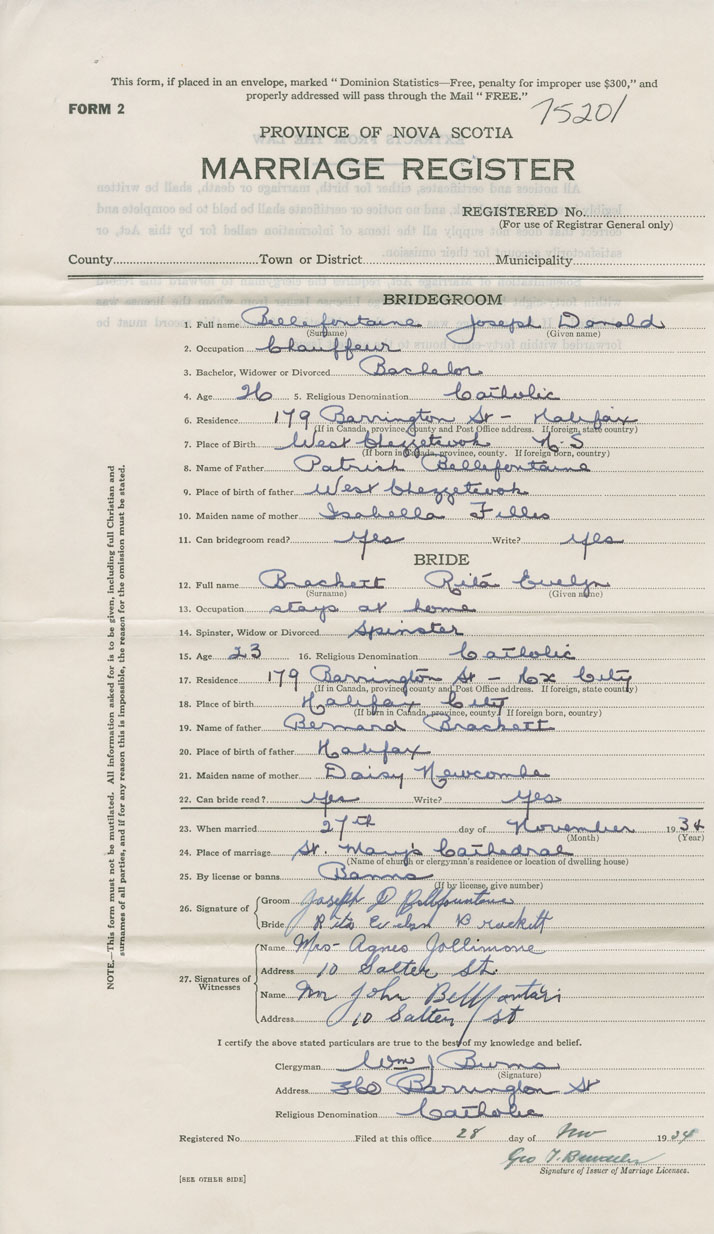 This form, if placed in an envelope, marked "Dominion Statistics—Free, penalty for improper use $300," and
properly addressed will pass through the Mail "FREE."
FORM 2
75201
PROVINCE OF NOVA SCOTIA
MARRIAGE REGISTER
REGISTERED No.
(For use of Registrar General only)
County Town or District Municipality
BRIDEGROOM
1. Full name Bellefontaine Joseph Donald
(Surname) (Given name)
2. Occupation Chauffeur
3. Bachelor, Widower or Divorced Bachelor
4. Age 26 5. Religious Denomination Catholic
6. Residence 179 Barrington St - Halifax
(If in Canada, province, county and Post Office address. If foreign, state country)
7. Place of Birth West Chezzetcook N.S
(If born in Canada, province, county. If foreign born, country)
8. Name of Father Patrick Bellefontaine
9. Place of birth of father West Chezzetcook
10. Maiden name of mother Isabella
11. Can bridegroom read? Yes Write? Yes
BRIDE
12. Full name Brackett Rita Evelyn
(Surname) (Given name)
13. Occupation stays at home
14. Spinster, Widow or Divorced Spinster
15. Age 23 16. Religious Denomination Catholic
17. Residence 179 Barrington St - Hx City
(If in Canada, province, county and Post Office address. If foreign, state country)
18. Place of birth Halifax City
(If born in Canada, province, county. If foreign born, country)
19. Name of father Bernard Brackett
20. Place of birth of father Halifax
21. Maiden name of mother Daisy Newcombe
22. Can bride read? Yes Write? Yes
23. When married 27th day of November 1934
(Month) (Year)
24. Place of marriage St. Mary's Cathedral
(Name of church or clergyman's residence or location of dwelling house)
25. By license or banns Banns
(If by license, give number)
26. Signature of
Groom Joseph D
Bride Rita Brackett
27. Signatures of Witnesses
Name Mrs - Agnes Jollimore
Address 10 Salter St.
Name Mr John
Address 10 Salter St
I certify the above stated particulars are true to the best of my knowledge and belief.
Clergyman Wm J Burns
(Signature)
Address 360 Barrington St
Religious Denomination Catholic
Registered No. Filed at this office 28 day of Nov 1934
Geo T.
Signature of Issuer of Marriage Licenses.
[SEE OTHER SIDE]
NOTE.—This form must not be mutilated. All information asked for is to be given, including full Christian and
surnames of all parties, and if for any reason this is impossible, the reason for the omission must be stated.